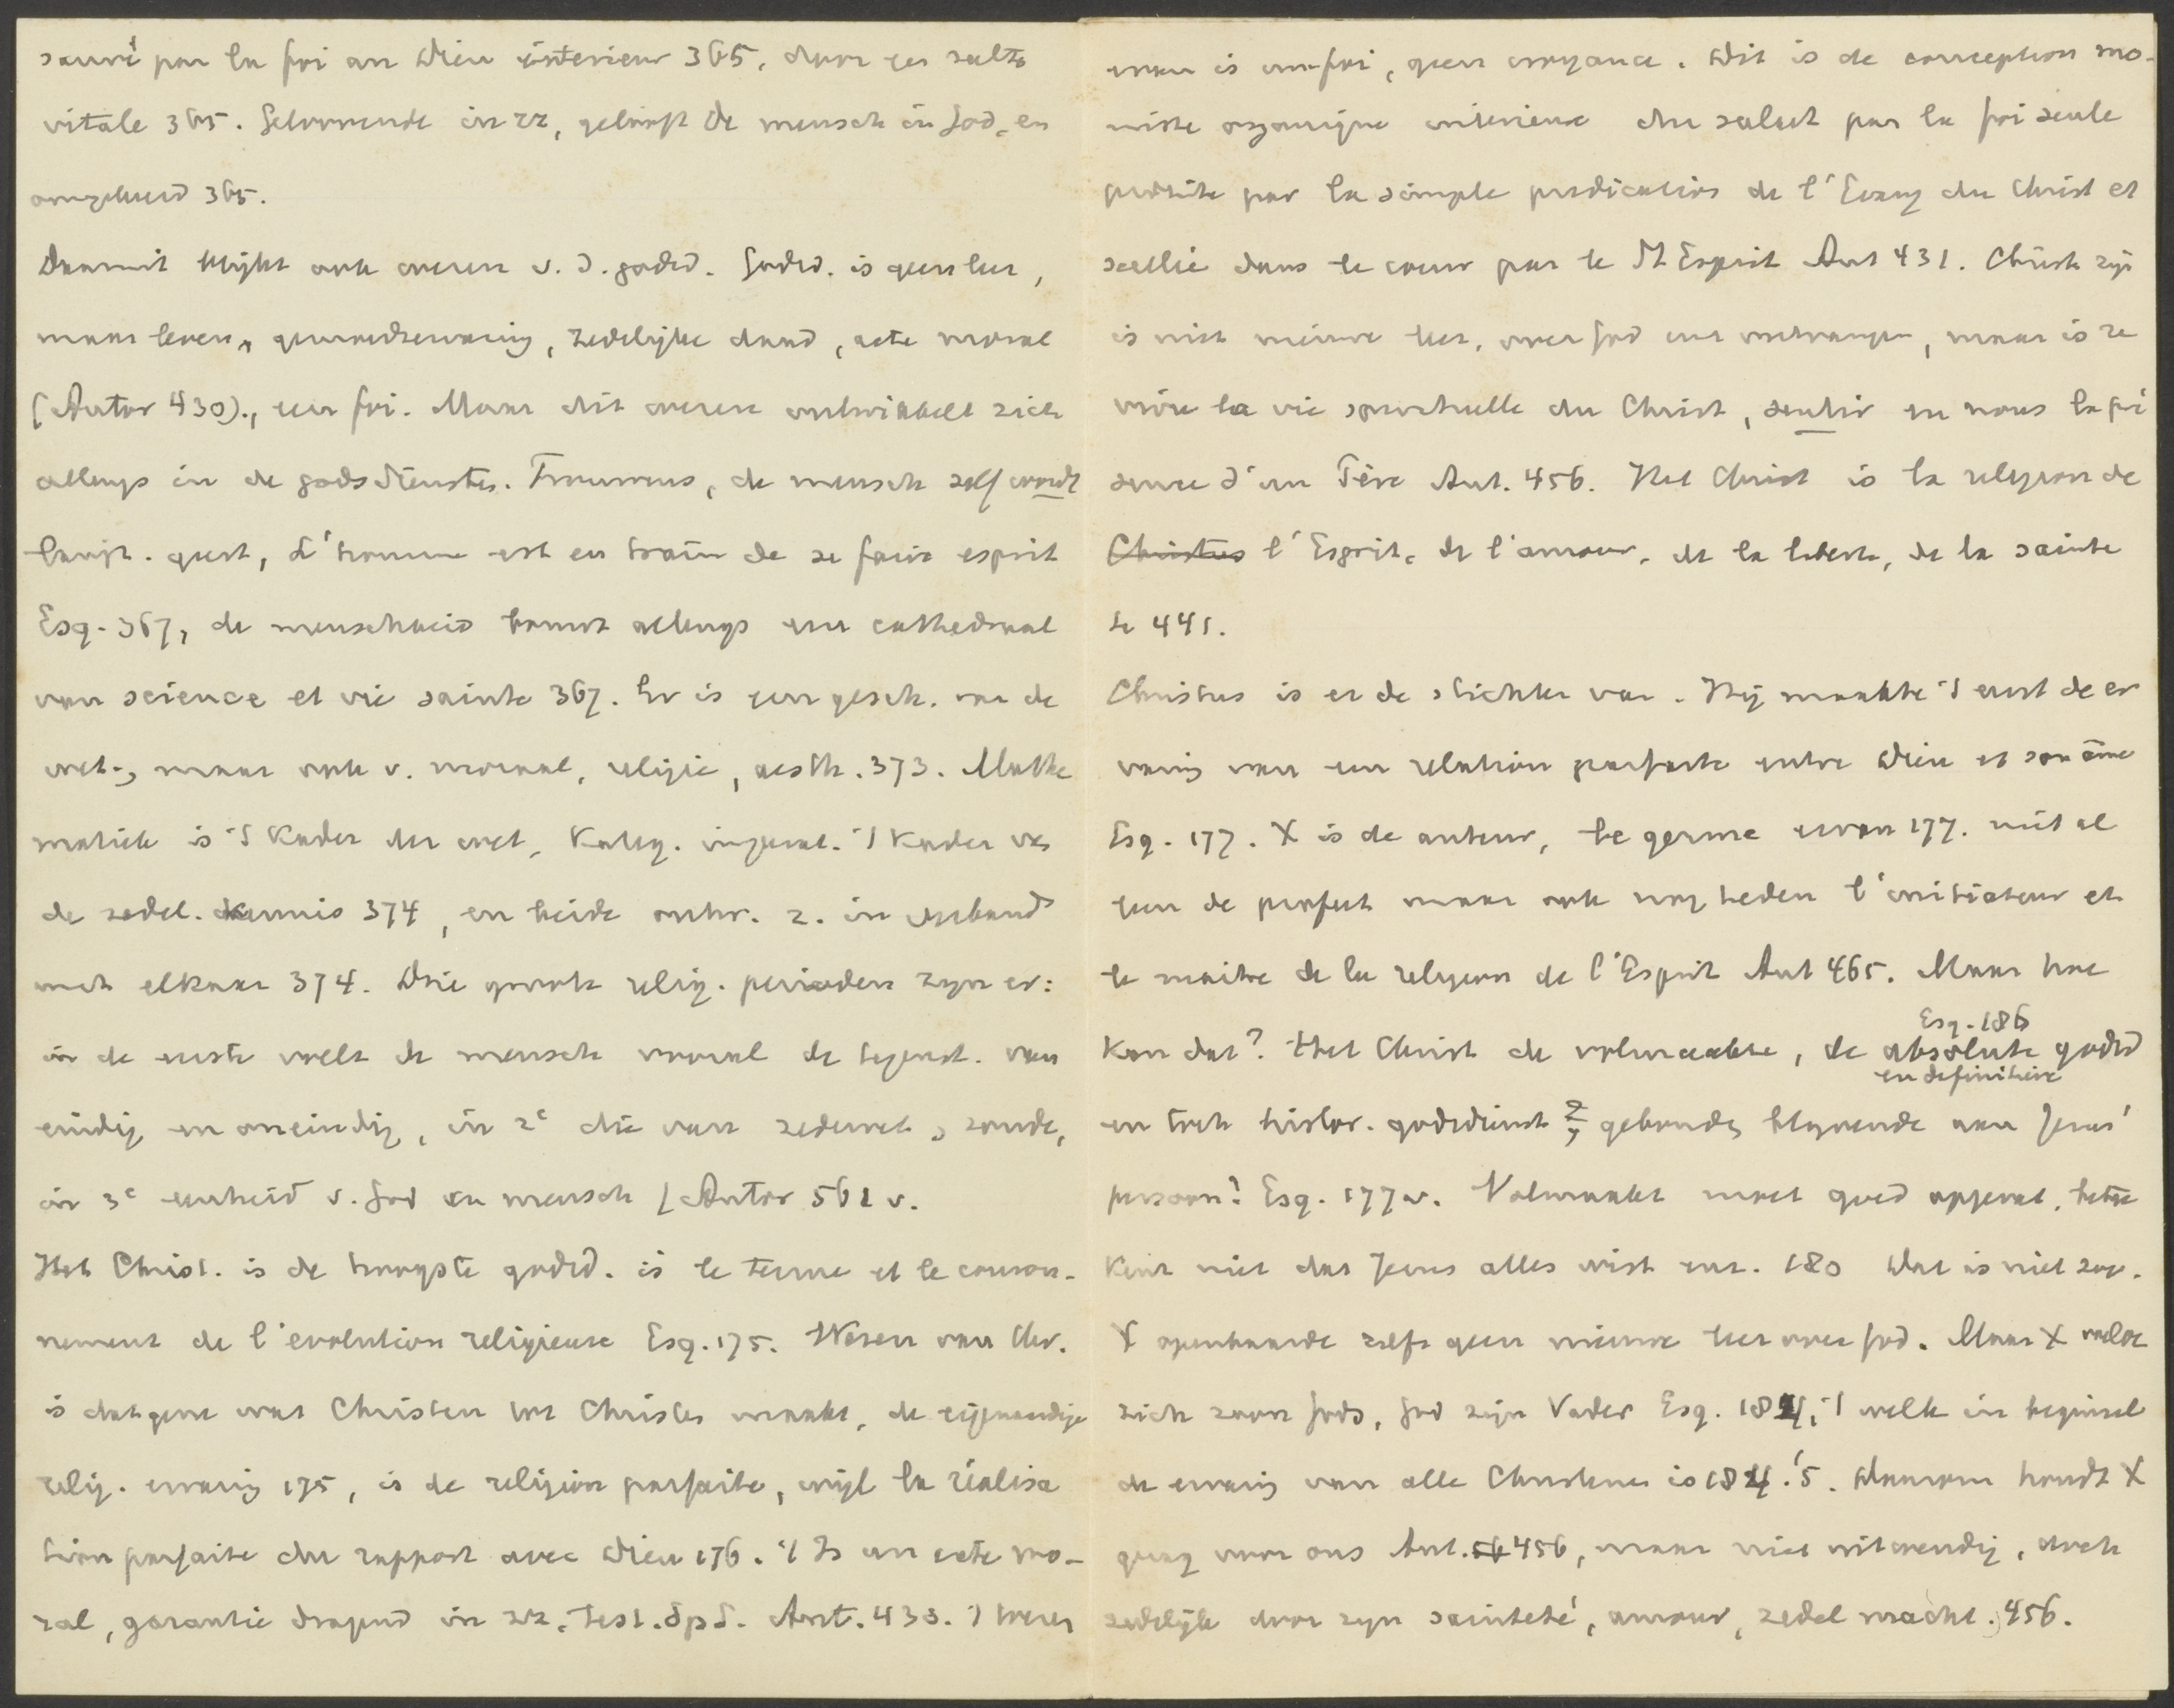 sauvé par la foi au Dieu intérieur 365, door een salto
vitale 365. Geloovende in zz, gelooft de mensch in God, en
omgekeerd 365.
Daaruit blijkt ook wezen v. d. godsd. Godsd. is geen leer,
maar leven, gemoedservaring, zedelijke daad, acte moral
(Autor 430)., een foi. Maar dit wezen ontwikkelt zich
allengs in de godsdiensten. Trouwens, de mensch zelf wordt
langz. geest, L'homme est en train de se faire esprit
Esq. 367, de menschheid bouwt allengs een cathedraal
van science et vie sainte 367. Er is een gesch. van de
wet., maar ook v. moraal, religie, aesth. 373. Mathe
matiek is 't Kader der wet, Kateg. imperat. 't Kader van
de zedel. kennis 374, en beide ontw. z. in verband
met elkaar 374. Drie groote relig. perioden zijn er:
in de eerste voelt de mensch vooral de tegenst. van
eindig en oneindig, in 2e die van zedewet, zonde,
in 3e eenheid v. God en mensch (Autor 561 v.
Het Christ. is de hoogste godsd. is le terme et le couron-
nement de l'evolution religieuse Esq. 175. Wezen van Chr.
is datgene wat Christen tot Christen maakt, de eigenaardige
relig. ervaring 175, is de religion parfaite, wijl la réalisa
tion parfaite du rapport avec Dieu 176. 't Is un acte mo-
ral, garantie dragend in zz. Test. Sp S. Aut. 433. 't wezen
ervan is une foi, geen croyance. Dit is de conception mo-
niste organique interieure du salut par la foi seule
produite par la simple predication de l'Evang du Christ et
scellée dans le coeur par le St Esprit Aut 431. Christen zijn
is niet nieuwe leer, over God enz ontvangen, maar is re
vivre la vie spirituelle du Christ, sentir en nous la pré
sence d'un Père Aut. 456. Het Christ is la religion de
Christus l'Esprit, de l'amour, de la liberté, de la sainte
té 441.
Christus is er de stichter van. Hij maakte 't eerst de er
varing van een relation parfaite entre Dieu et son âme
Esq. 177. X is de auteur, le germe ervan 177. niet al
leen de profeet maar ook nog heden l'initiateur et
le maitre de la religion de l'Esprit Aut 465. Maar hoe
Esq. 186
Kan dat? Het Christ de volmaakte, de absolute godsd
en definitieve
en toch histor. godsdienst?, gebonden blijvende aan Jezus'
persoon? Esq. 177 v. Volmaakt moet goed opgevat, betee
kent niet dat Jezus alles wist enz. 180 Dat is niet zoo.
X openbaarde zelfs geen nieuwe leer over God. Maar X voelde
zich zoon Gods, God zijn Vader Esq. 184, 't welk in beginsel
de ervaring van alle Christenen is 184.'5. Daarom houdt X
gezag voor ons Aut. 456, maar niet uitwendig, doch
zedelijk door zijn sainteté, amour, zedel macht. 456.